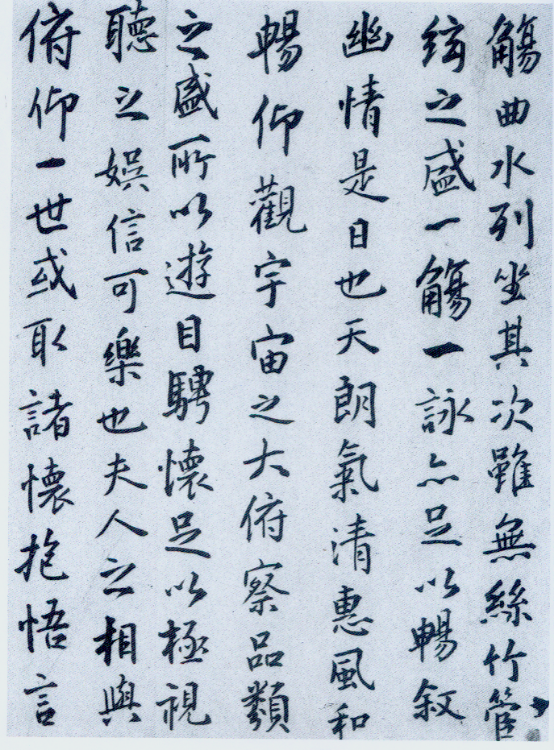 觴曲水列坐其次雖無絲竹管
絃之盛一觴一詠亦足以暢叙
幽情是日也天朗氣清惠風和
暢仰觀宇宙之大俯察品類
之盛所以遊目騁懷足以極視
聽之娛信可樂也夫人之相與
俯仰一世或取諸懷抱悟言